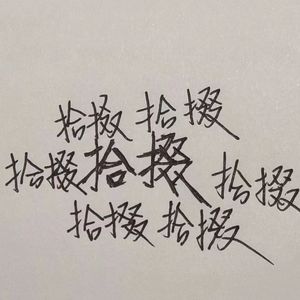 拾掇 拾掇
拾掇 拾掇 拾掇
拾掇 拾掇